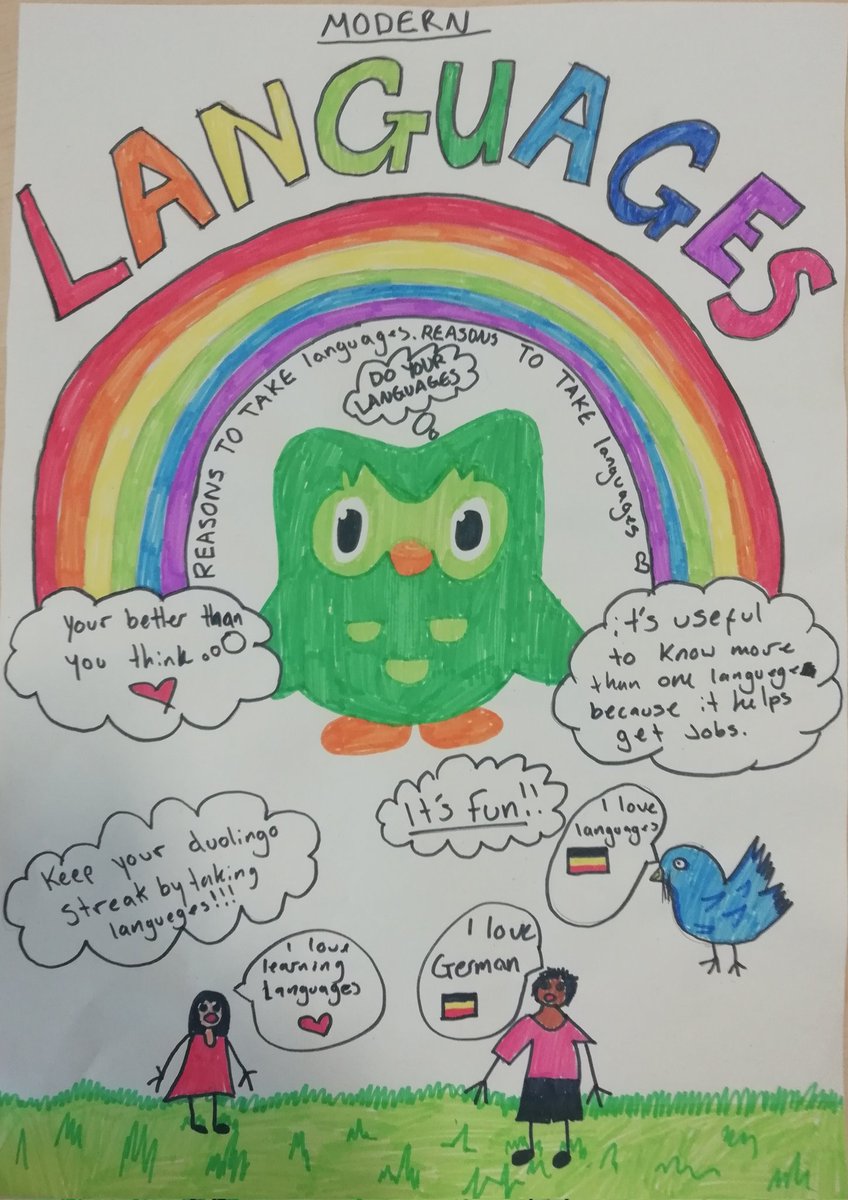 MODERN
LANGUAGES
REASONS TO TAKE languages. REASONS TO TAKE languages
DO YOUR
LANGUAGES
Your better than
you think...
it's useful
to know more
than one languege
because it helps
get jobs.
It's fun!!
I love
languages
Keep your duolingo
streak by taking
langueges!!!
I love
learning
Languages
I love
German